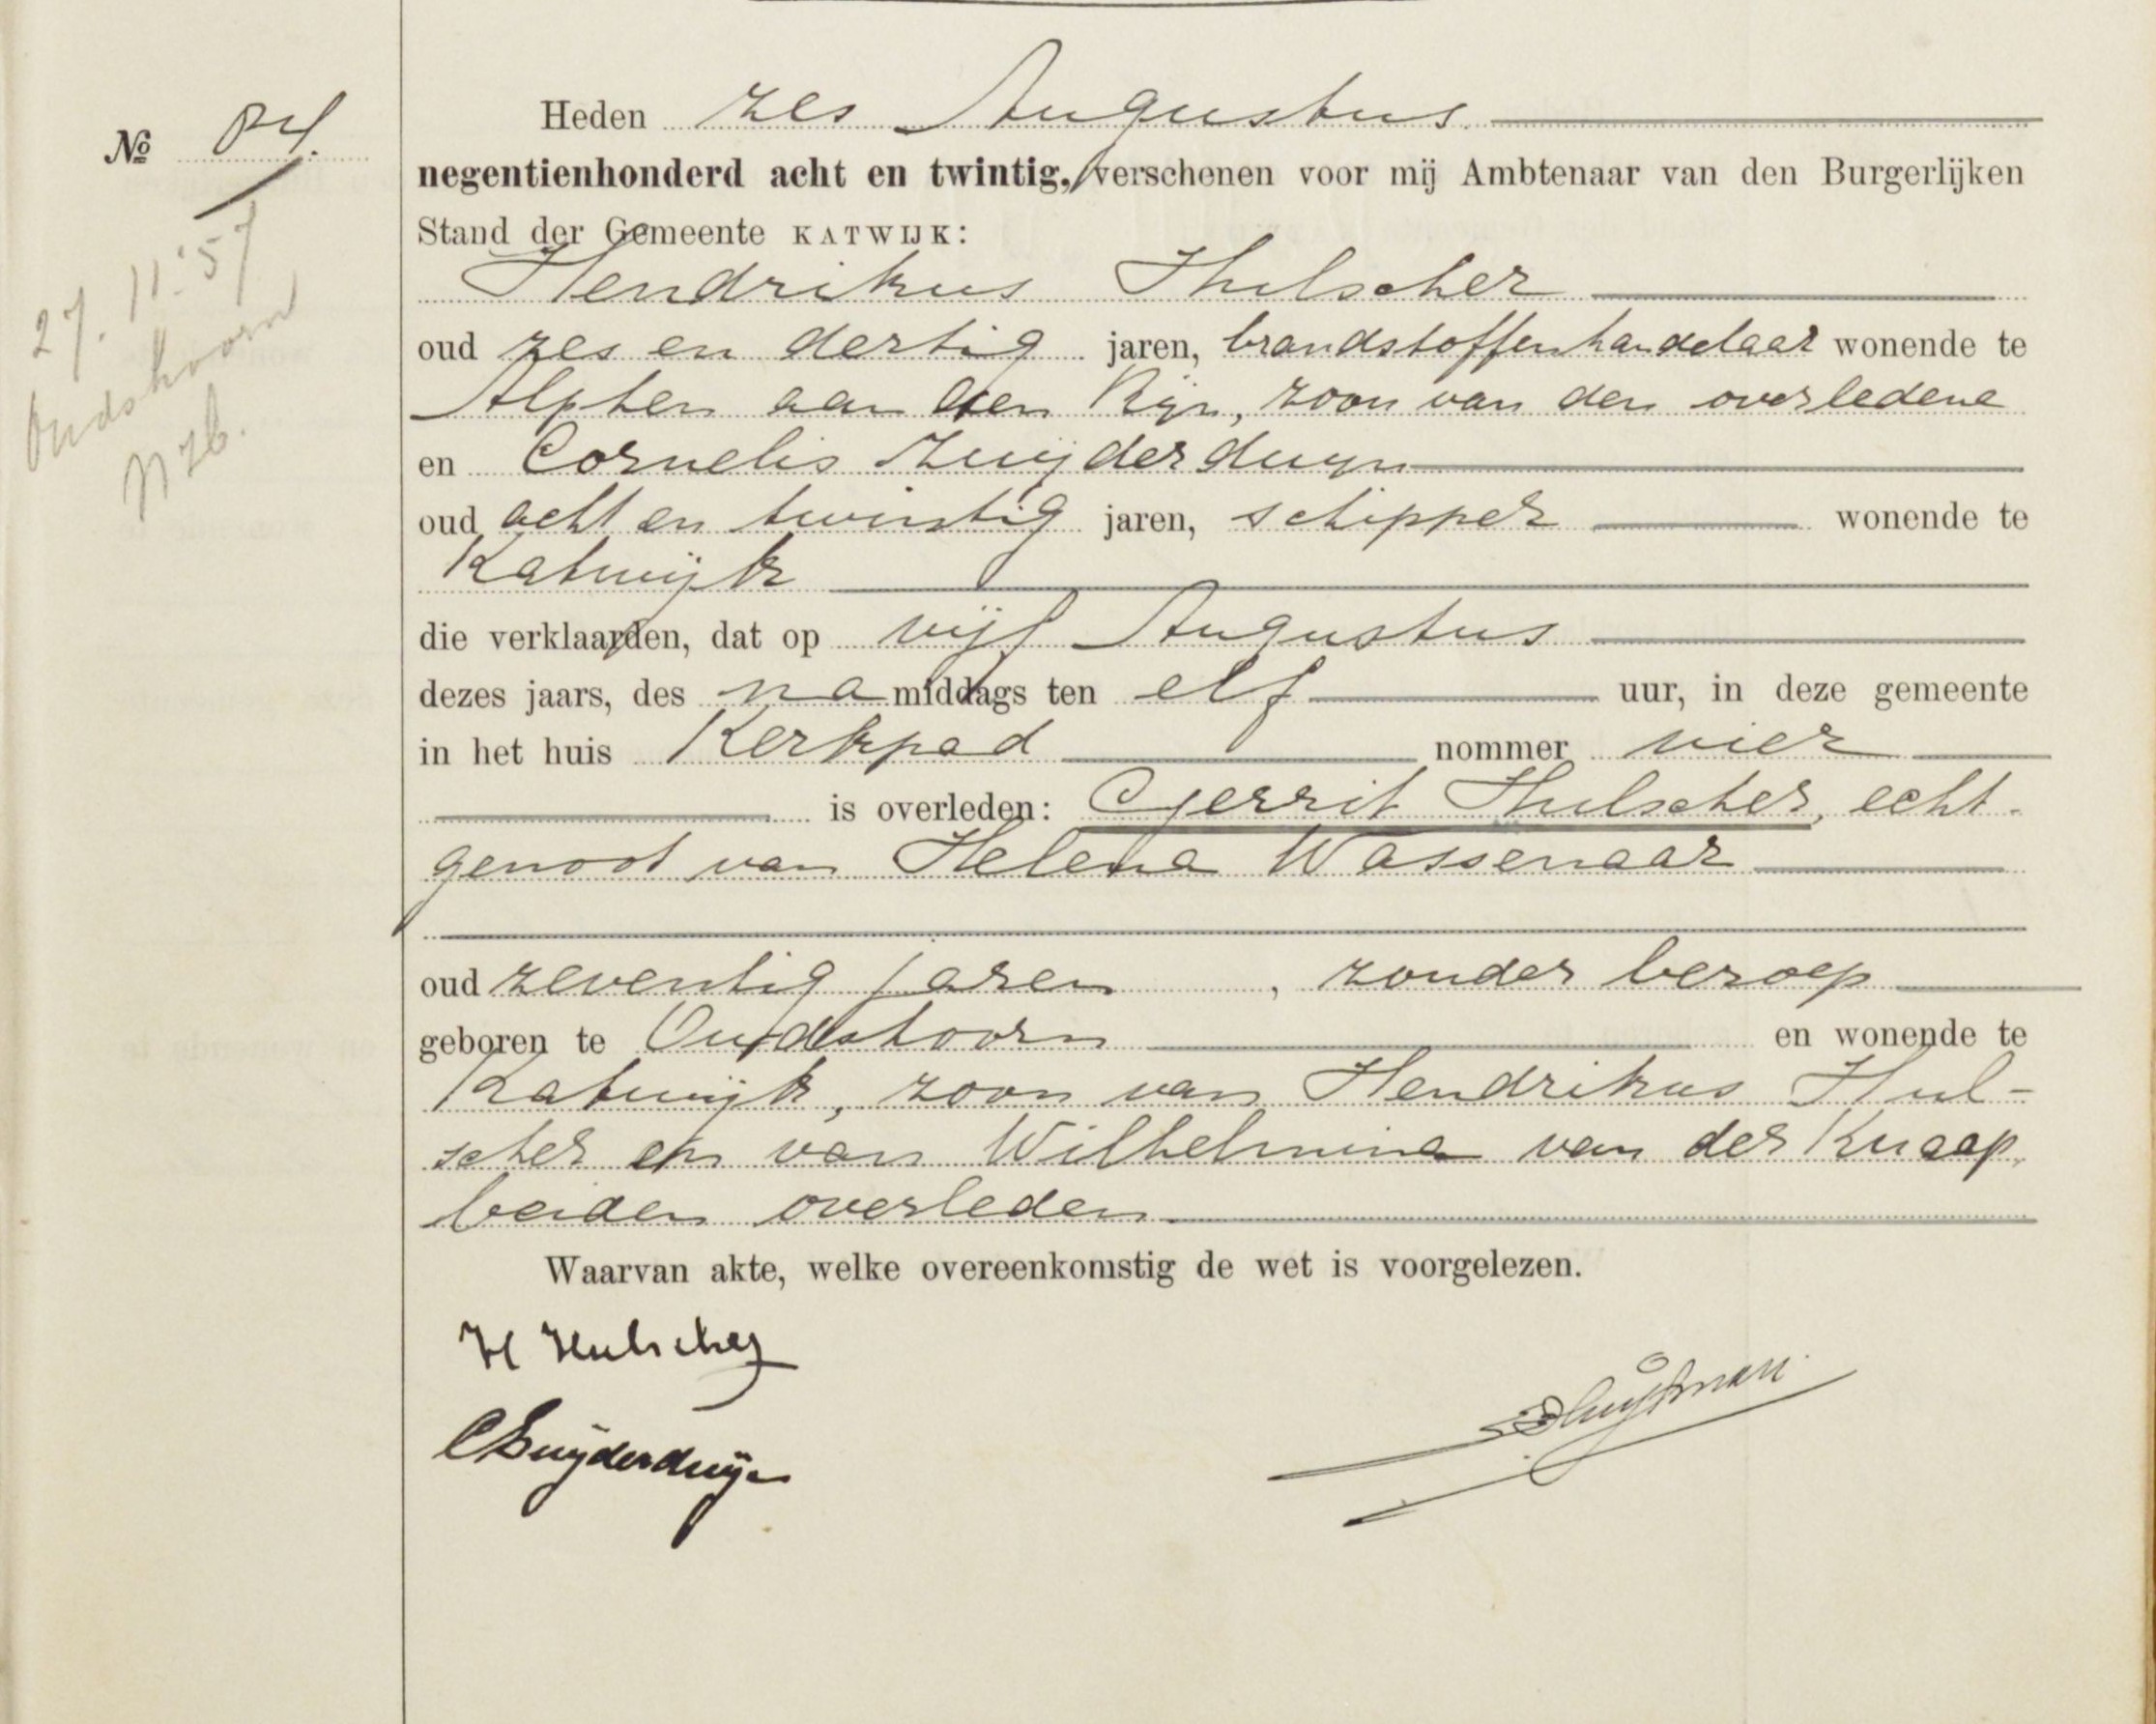 Heden zes Augustus
Nº 84.
negentienhonderd acht en twintig, verschenen voor mij Ambtenaar van den Burgerlijken
Stand der Gemeente KATWIJK:
27.11.'57
Oudshoorn
Hendrikus Hulscher
oud zes en dertig jaren, brandstoffenhandelaar wonende te
Alphen aan den Rijn, zoon van den overledene
en Cornelis Zuijderduijn
oud acht en twintig jaren, schipper wonende te
Katwijk
die verklaarden, dat op vijf Augustus
dezes jaars, des namiddags ten elf uur, in deze gemeente
in het huis Kerkpad nommer vier
is overleden: Gerrit Hulscher, echt-
genoot van Helena Wassenaar
oud zeventig jaren, zonder beroep
geboren te Oudshoorn en wonende te
Katwijk, zoon van Hendrikus Hul-
scher en van Wilhelmina van der Knaap,
beiden overleden
Waarvan akte, welke overeenkomstig de wet is voorgelezen.
H Hulscher
C Zuijderduijn